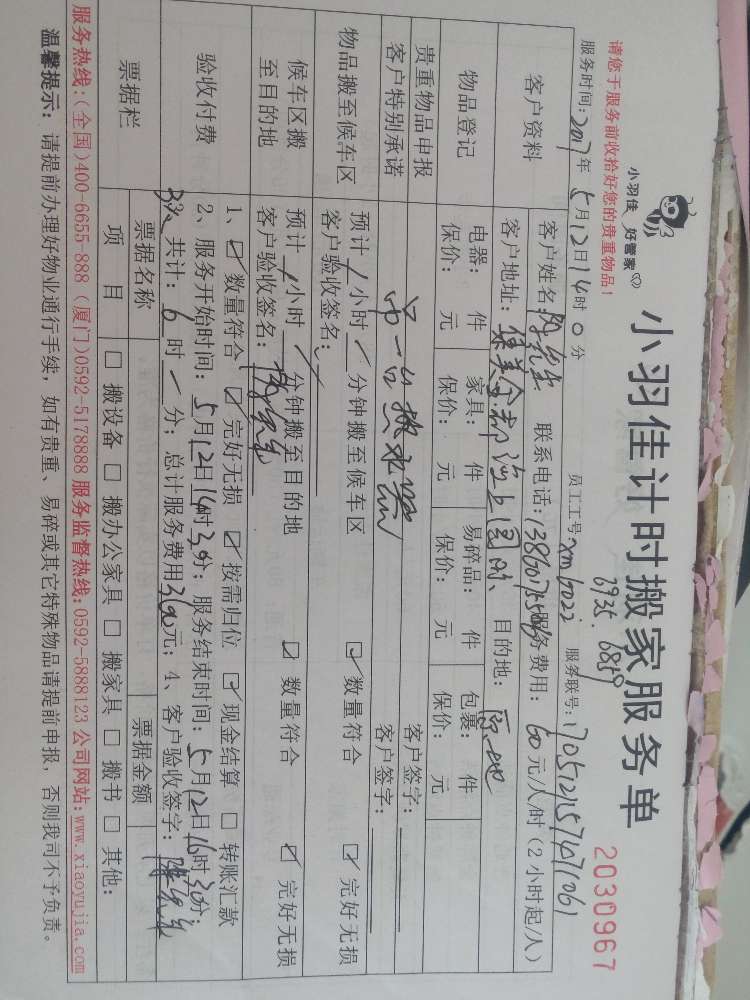 小羽佳 好管家
小羽佳计时搬家服务单
2030967
请您于服务前收拾好您的贵重物品！
6935. 6859
服务时间：2017年 5月12日14时0分 员工工号：xm6022 服务联号：170512157471061
客户资料
客户姓名： 先生 联系电话： 服务费用：60元/人/时（2小时起/人）
客户地址：集美 海上 目的地：
物品登记
电器： 件 家具： 件 易碎品： 件 包裹： 件
保价： 元 保价： 元 保价： 元 保价： 元
贵重物品申报 客户签字：
客户特别承诺 客户签字：
物品搬至候车区
预计/小时 分钟搬至候车区 ☑数量符合 ☑完好无损
客户验收签名：
候车区搬至目的地
预计/小时/分钟搬至目的地 ☑数量符合 ☑完好无损
客户验收签名：
验收付费
1、☑数量符合 ☑完好无损 ☑按需归位 ☑现金结算 □转账汇款
2、服务开始时间：5月12日14时30分；服务结束时间：5月12日16时30分；
3人 共计：6时/分；总计服务费用360元；4、客户验收签字：
票据栏
票据名称 票据金额
项目 □搬设备 □搬办公家具 □搬家具 □搬书 □其他：
服务热线：（全国）400-6655-888（厦门）0592-5178888 服务监督热线：0592-5888123 公司网站：www.xiaoyujia.com
温馨提示：请提前办理好物业通行手续，如有贵重、易碎或其它特殊物品请提前申报，否则我司不予负责。